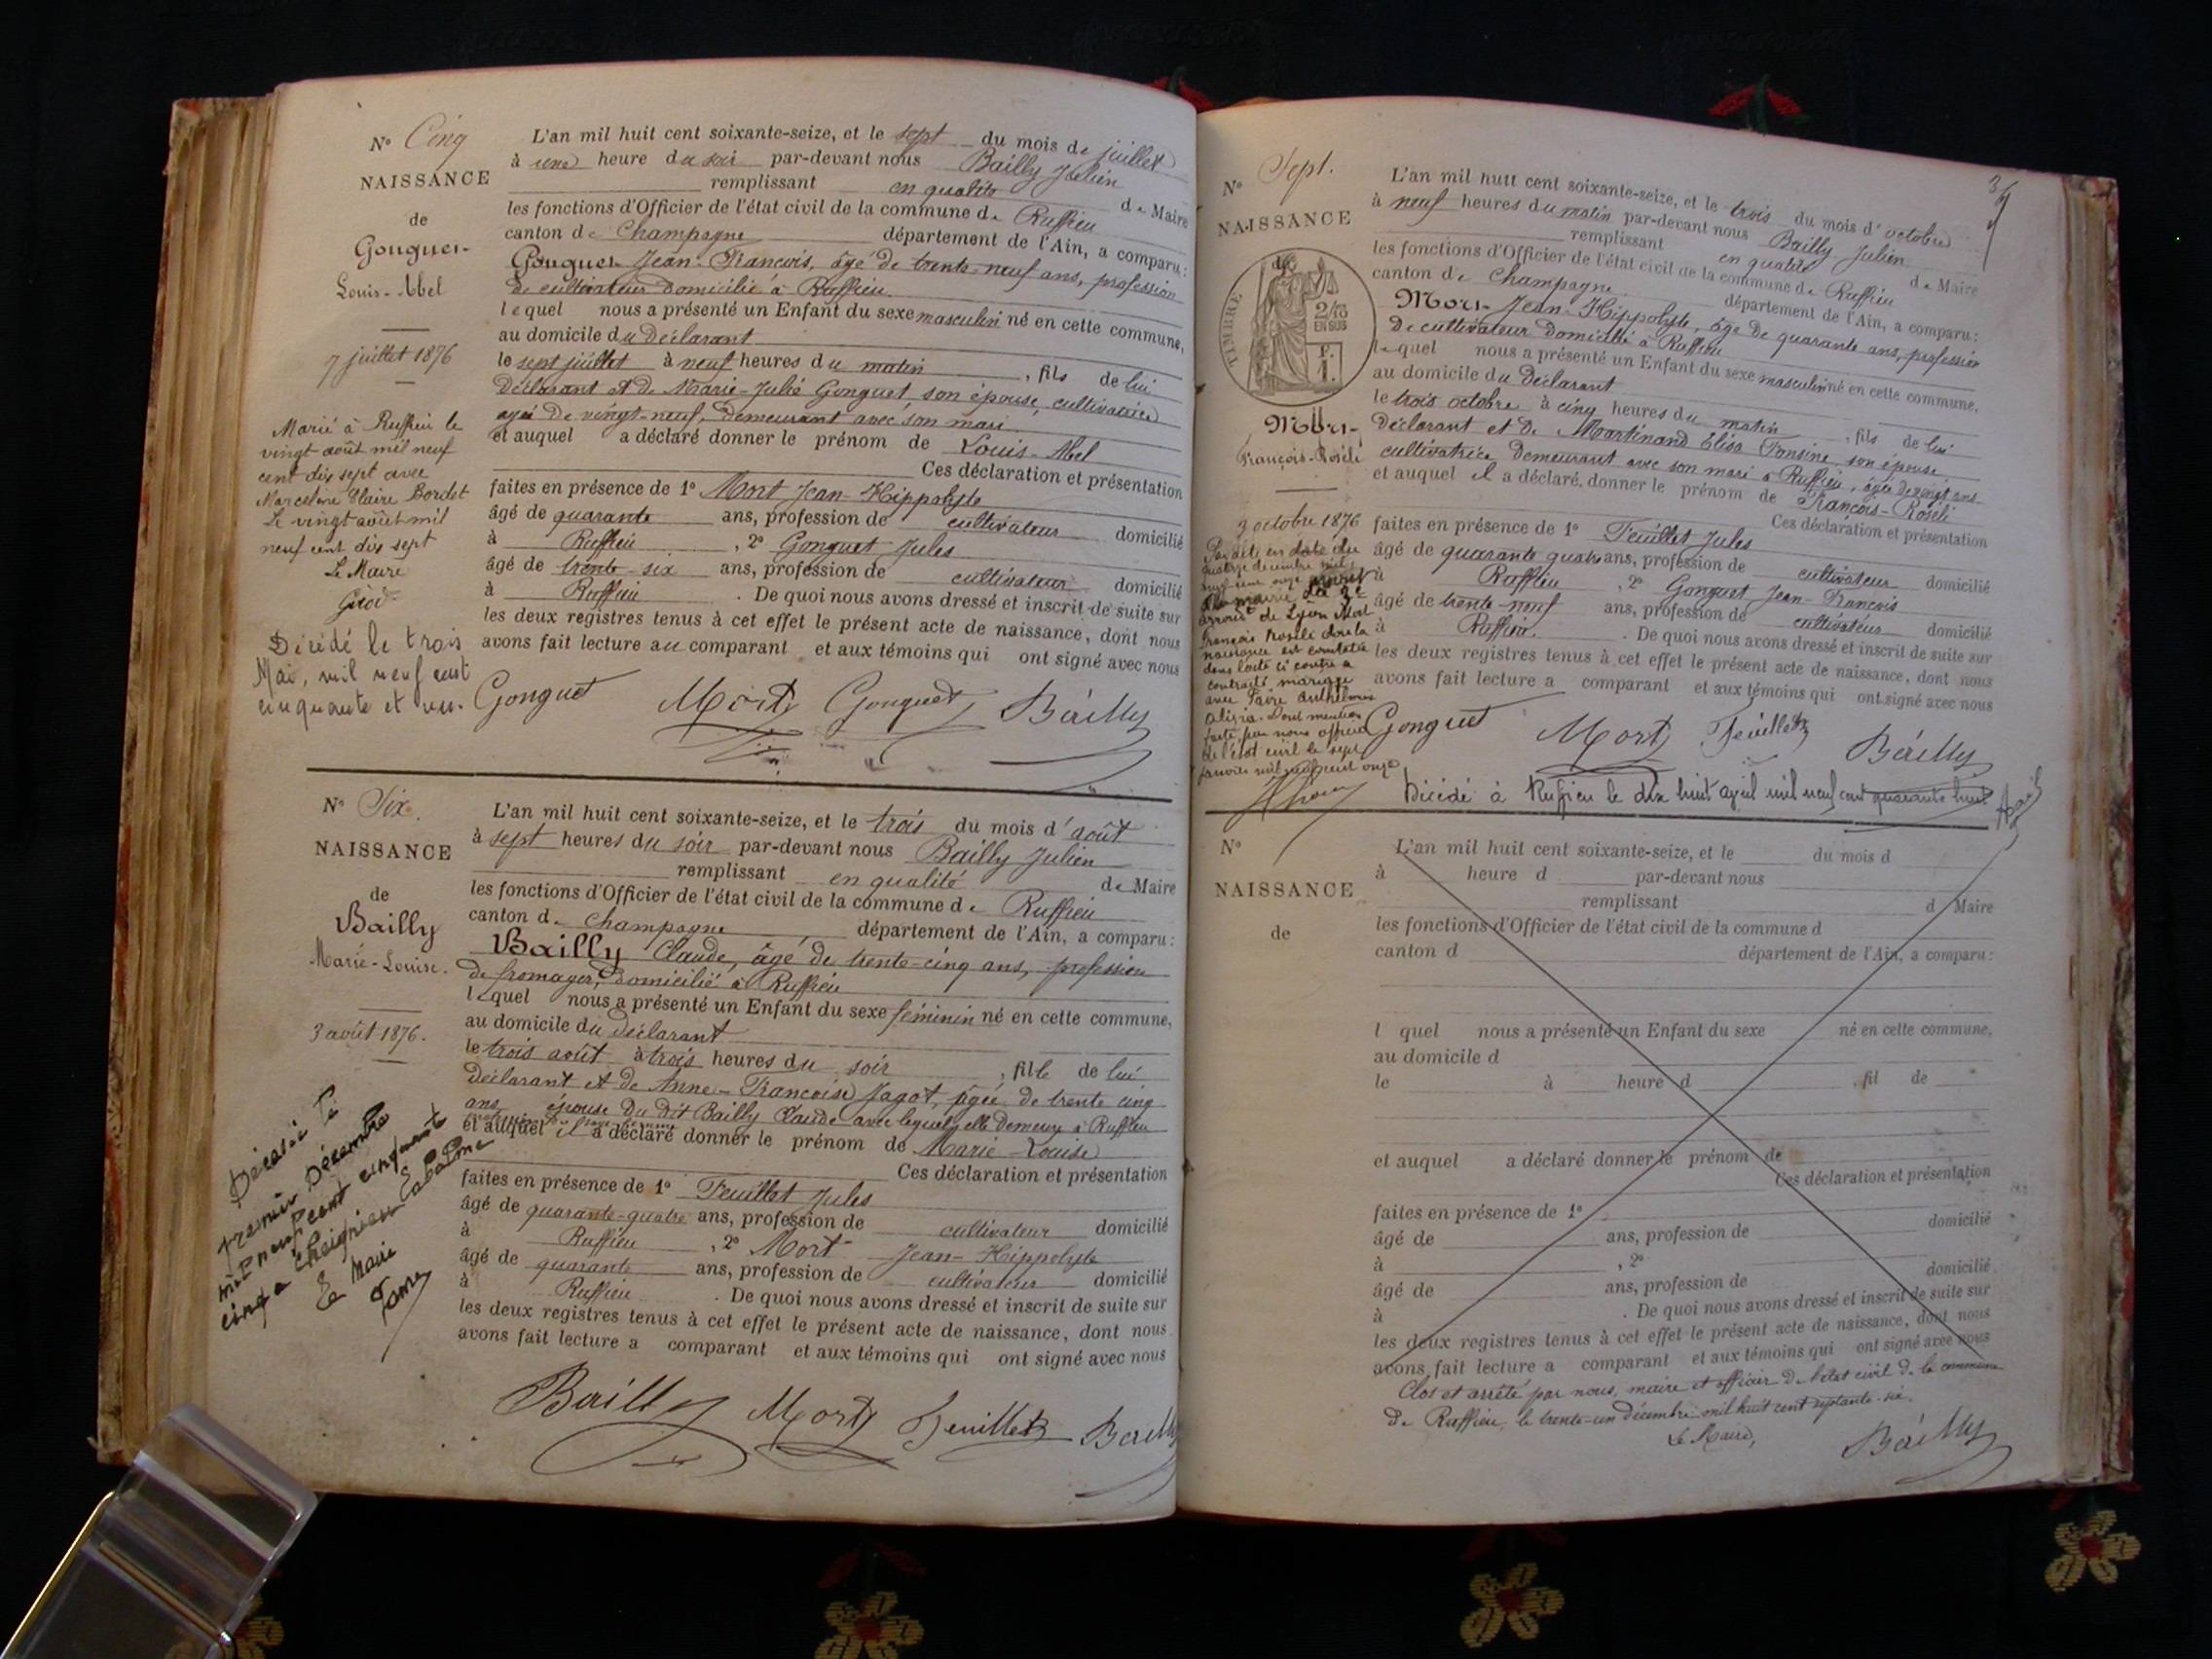 N° Cinq
NAISSANCE
de
Gonguet
Louis-Abel
7 juillet 1876
Marié à Ruffieu le
vingt août mil neuf
cent dix sept avec
Marceline Claire Bordet
Le vingt août mil
neuf cent dix sept
Le Maire
Décédé le trois
Mai, mil neuf cent
cinquante et un.
L'an mil huit cent soixante-seize, et le sept du mois de juillet
à une heure du soir par-devant nous Bailly Julien
remplissant en qualité de Maire
les fonctions d'Officier de l'état civil de la commune de Ruffieu
canton de Champagne département de l'Ain, a comparu:
Gonguet Jean-François, âgé de trente-neuf ans, profession
de cultivateur domicilié à Ruffieu
lequel nous a présenté un Enfant du sexe masculin né en cette commune,
au domicile du déclarant
le sept juillet à neuf heures du matin, fils de lui
déclarant et de Marie-Julie Gonguet son épouse, cultivatrice
agée de vingt-neuf, demeurant avec son mari
et auquel a déclaré donner le prénom de Louis-Abel
Ces déclaration et présentation
faites en présence de 1° Mort Jean-Hippolyte
âgé de quarante ans, profession de cultivateur domicilié
à Ruffieu, 2° Gonguet Jules
âgé de trente-six ans, profession de cultivateur domicilié
à Ruffieu. De quoi nous avons dressé et inscrit de suite sur
les deux registres tenus à cet effet le présent acte de naissance, dont nous
avons fait lecture au comparant et aux témoins qui ont signé avec nous
Gonguet Mort Gonguet Bailly
N° Six.
NAISSANCE
de
Bailly
Marie-Louise.
3 août 1876.
Décédée le
premier Décembre
mil neuf cent cinquante
cinq à
Le Maire
L'an mil huit cent soixante-seize, et le trois du mois d'août
à sept heures du soir par-devant nous Bailly Julien
remplissant en qualité de Maire
les fonctions d'Officier de l'état civil de la commune de Ruffieu
canton de Champagne, département de l'Ain, a comparu:
Bailly Claude, âgé de trente-cinq ans, profession
de fromager, domicilié à Ruffieu
lequel nous a présenté un Enfant du sexe féminin né en cette commune,
au domicile du déclarant
le trois août à trois heures du soir, fille de lui
déclarant et de Anne-Françoise Jagot, âgée de trente cinq
ans épouse du dit Bailly Claude avec lequel elle demeure à Ruffieu
et auquel il a déclaré donner le prénom de Marie-Louise
Ces déclaration et présentation
faites en présence de 1° Feuillet Jules
âgé de quarante-quatre ans, profession de cultivateur domicilié
à Ruffieu, 2° Mort Jean-Hippolyte
âgé de quarante ans, profession de cultivateur domicilié
à Ruffieu. De quoi nous avons dressé et inscrit de suite sur
les deux registres tenus à cet effet le présent acte de naissance, dont nous
avons fait lecture a comparant et aux témoins qui ont signé avec nous
Bailly Mort Feuillet Bailly
N° Sept.
NAISSANCE
de
TIMBRE
2/10
EN SUS
F.
1.
Mort
François-Roséli
3 octobre 1876
Par acte en date du
quatorze décembre mil
neuf cent onze
la mairie du
arrond^t de Lyon Mort
François Roséli dont la
naissance est constatée
dans l'acte ci contre a
contracté mariage
avec
Dont mention
faite par nous officier
de l'état civil le sept
janvier mil neuf cent onze
L'an mil huit cent soixante-seize, et le trois du mois d'octobre
à neuf heures du matin par-devant nous Bailly Julien
remplissant en qualité de Maire
les fonctions d'Officier de l'état civil de la commune de Ruffieu
canton de Champagne département de l'Ain, a comparu:
Mort Jean-Hippolyte, âgé de quarante ans, profession
de cultivateur domicilié à Ruffieu
lequel nous a présenté un Enfant du sexe masculin né en cette commune,
au domicile du déclarant
le trois octobre à cinq heures du matin, fils de lui
déclarant et de Martinand Elisa Fonsine, son épouse
cultivatrice demeurant avec son mari à Ruffieu, âgée de vingt ans
et auquel il a déclaré donner le prénom de François-Roséli
Ces déclaration et présentation
faites en présence de 1° Feuillet Jules
âgé de quarante quatre ans, profession de cultivateur domicilié
à Ruffieu, 2° Gonguet Jean-François
âgé de trente-neuf ans, profession de cultivateur domicilié
à Ruffieu. De quoi nous avons dressé et inscrit de suite sur
les deux registres tenus à cet effet le présent acte de naissance, dont nous
avons fait lecture a comparant et aux témoins qui ont signé avec nous
Gonguet Mort Feuillet Bailly
Décédé à Ruffieu le dix huit avril mil neuf cent quarante huit
N°
NAISSANCE
de
L'an mil huit cent soixante-seize, et le du mois d
à heure d par-devant nous
remplissant d Maire
les fonctions d'Officier de l'état civil de la commune d
canton d département de l'Ain, a comparu:
l quel nous a présenté un Enfant du sexe né en cette commune,
au domicile d
le à heure d, fil de
et auquel a déclaré donner le prénom de
Ces déclaration et présentation
faites en présence de 1°
âgé de ans, profession de domicilié
à, 2°
âgé de ans, profession de domicilié
à. De quoi nous avons dressé et inscrit de suite sur
les deux registres tenus à cet effet le présent acte de naissance, dont nous
avons fait lecture a comparant et aux témoins qui ont signé avec nous
Clos et arrêté par nous, maire et officier de l'état civil de la commune
de Ruffieu, le trente-un décembre mil huit cent septante-six.
Le Maire,
Bailly